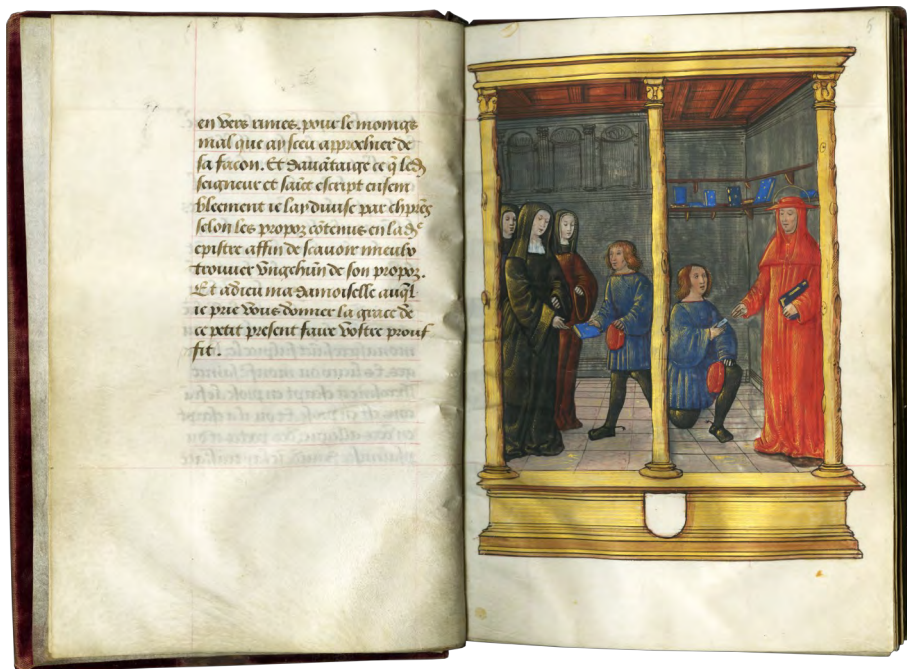 en vers rimes. pour le moings
mal que ay sceu approchier de
sa facon. Et davātaige ce q̄ led.
seigneur et saīct escript ensem
bleement ie lay divise par chp̄res
selon les propoz cōtenus en lad.e
epistre affin de scavoir mieulx
trouver vngchūn de son propoz.
Et adieu madamoiselle auq̄l
ie prie vous donner la grace de
ce petit present faire vostre prouf
fit.
5